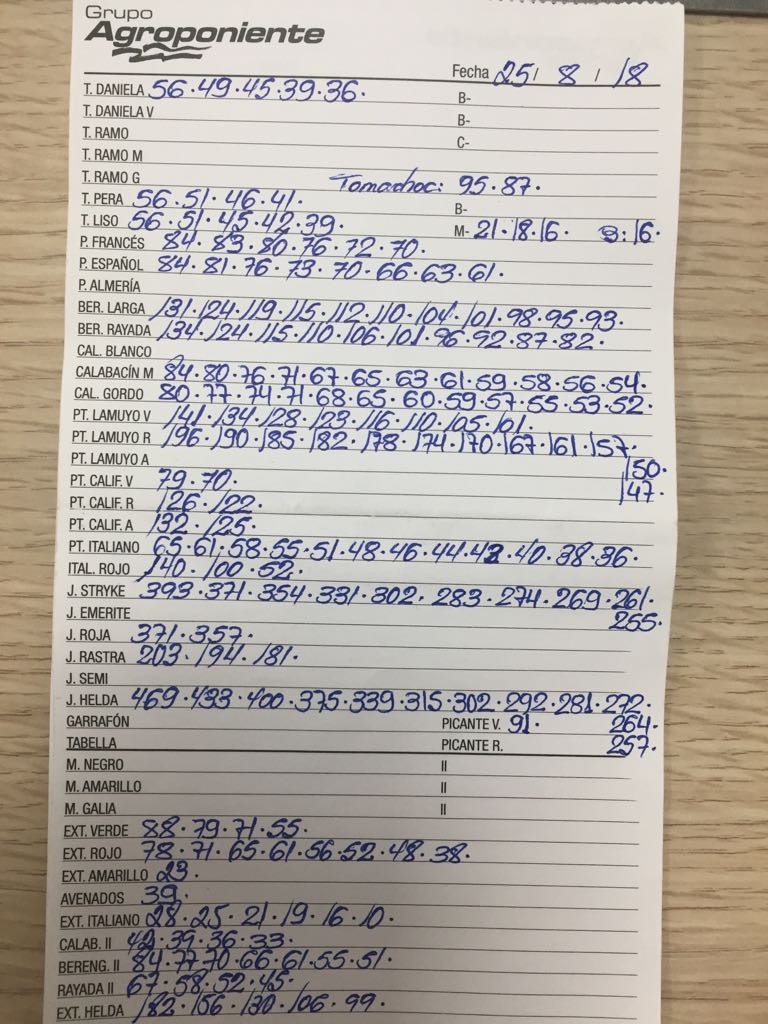 Grupo
Agroponiente
Fecha 25/ 8 / 18
T. DANIELA 56.49.45.39.36. B-
T. DANIELA V B-
T. RAMO C-
T. RAMO M
T. RAMO G Tomachoc: 95.87.
T. PERA 56.51.46.41. B-
T. LISO 56.51.45.42.39. M- 21.18.16. B:16.
P. FRANCÉS 84.83.80.76.72.70.
P. ESPAÑOL 84.81.76.73.70.66.63.61.
P. ALMERÍA
BER. LARGA 131.124.119.115.112.110.104.101.98.95.93.
BER. RAYADA 134.124.115.110.106.101.96.92.87.82.
CAL. BLANCO
CALABACÍN M 84.80.76.71.67.65.63.61.59.58.56.54.
CAL. GORDO 80.77.74.71.68.65.60.59.57.55.53.52.
PT. LAMUYO V 141.134.128.123.116.110.105.101.
PT. LAMUYO R 196.190.185.182.178.174.170.167.161.157.
PT. LAMUYO A 150.
PT. CALIF. V 79.70. 147.
PT. CALIF. R 126.122.
PT. CALIF. A 132.125.
PT. ITALIANO 65.61.58.55.51.48.46.44.42.40.38.36.
ITAL. ROJO 140.100.52.
J. STRYKE 393.371.354.331.302.283.274.269.261.
J. EMERITE 255.
J. ROJA 371.357.
J. RASTRA 203.194.181.
J. SEMI
J. HELDA 469.433.400.375.339.315.302.292.281.272.
GARRAFÓN PICANTE V. 91. 264.
TABELLA PICANTE R. 257.
M. NEGRO II
M. AMARILLO II
M. GALIA II
EXT. VERDE 88.79.71.55.
EXT. ROJO 78.71.65.61.56.52.48.38.
EXT. AMARILLO 23.
AVENADOS 39.
EXT. ITALIANO 28.25.21.19.16.10.
CALAB. II 42.39.36.33.
BERENG. II 84.77.70.66.61.55.51.
RAYADA II 67.58.52.45.
EXT. HELDA 182.156.130.106.99.